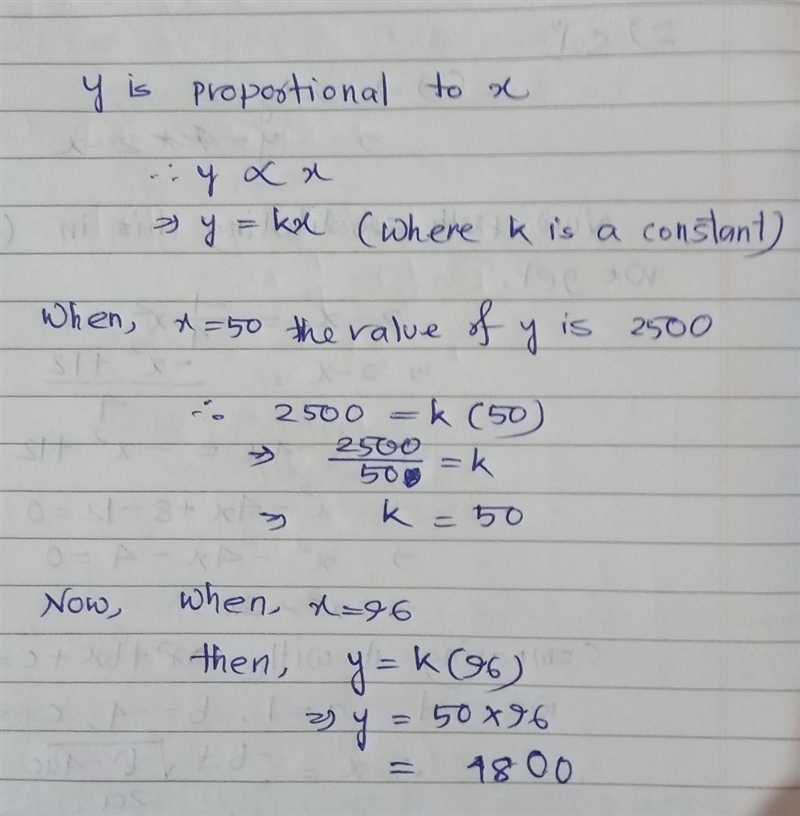 y is proportional to x
∴ y ∝ x
⇒ y = kx (where k is a constant)
When, x=50 the value of y is 2500
∴ 2500 = k (50)
⇒ 2500/50 = k
⇒ k = 50
Now, when, x=96
then, y = k(96)
⇒ y = 50×96
= 4800